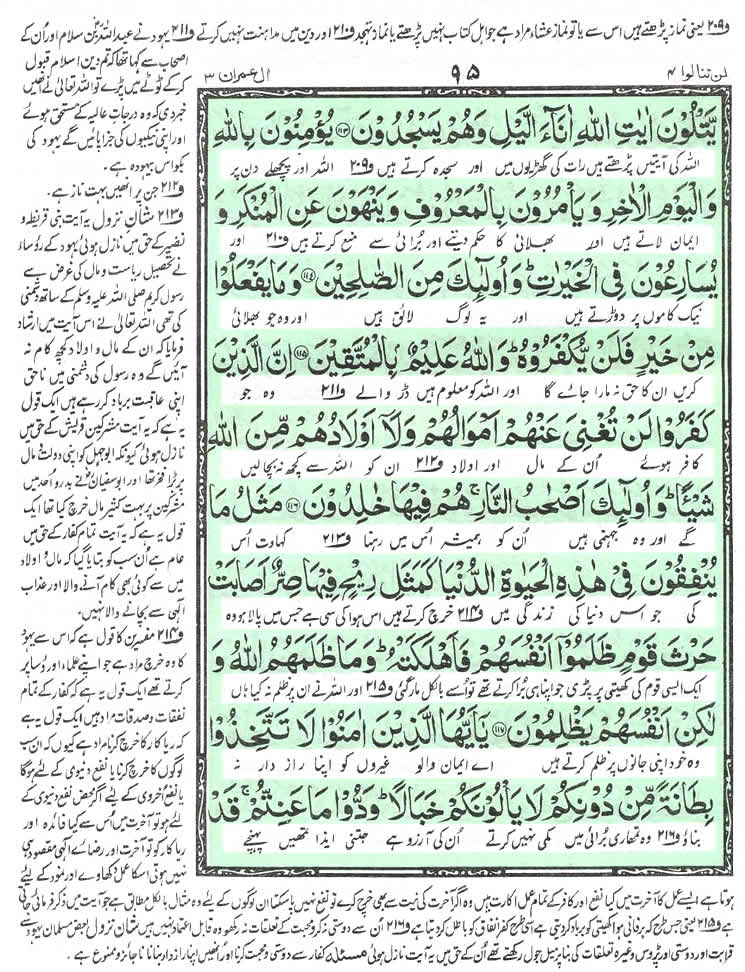 و۲۰۹ یعنی نماز پڑھتے ہیں اس سے یا تو نماز عشاء مراد ہے جو اہل کتاب نہیں پڑھتے یا نماز تہجد و۲۱۰ اور دین میں مداہنت نہیں کرتے و۲۱۱ یہود نے عبد اللہ بن سلام اور اُن کے
لن تنالوا ۴
۹۵
اٰل عمران ۳
یَّتْلُوْنَ اٰیٰتِ اللّٰهِ اٰنَآءَ الَّیْلِ وَهُمْ یَسْجُدُوْنَ ﴿۱۱۳﴾ یُؤْمِنُوْنَ بِاللّٰهِ
اللہ کی آیتیں پڑھتے ہیں رات کی گھڑیوں میں اور سجدہ کرتے ہیں و۲۰۹ اللہ اور پچھلے دن پر
وَالْیَوْمِ الْاٰخِرِ وَیَاْمُرُوْنَ بِالْمَعْرُوْفِ وَیَنْهَوْنَ عَنِ الْمُنْكَرِ وَ
ایمان لاتے ہیں اور بھلائی کا حکم دیتے اور بُرائی سے منع کرتے ہیں و۲۱۰ اور
یُسَارِعُوْنَ فِی الْخَیْرٰتِ ؕ وَاُولٰٓىِٕكَ مِنَ الصّٰلِحِیْنَ ﴿۱۱۴﴾ وَمَا یَفْعَلُوْا
نیک کاموں پر دوڑتے ہیں اور یہ لوگ لائق ہیں اور وہ جو بھلائی
مِنْ خَیْرٍ فَلَنْ یُّكْفَرُوْهُ ؕ وَاللّٰهُ عَلِیْمٌۢ بِالْمُتَّقِیْنَ ﴿۱۱۵﴾ اِنَّ الَّذِیْنَ
کریں ان کا حق نہ مارا جائے گا اور اللہ کو معلوم ہیں ڈر والے و۲۱۱ وہ جو
كَفَرُوْا لَنْ تُغْنِیَ عَنْهُمْ اَمْوَالُهُمْ وَلَاۤ اَوْلَادُهُمْ مِّنَ اللّٰهِ
کافر ہوئے اُن کے مال اور اولاد و۲۱۲ ان کو اللہ سے کچھ نہ بچالیں
شَیْـًٔا ؕ وَاُولٰٓىِٕكَ اَصْحٰبُ النَّارِ ۚ هُمْ فِیْهَا خٰلِدُوْنَ ﴿۱۱۶﴾ مَثَلُ مَا
گے اور وہ جہنمی ہیں اُن کو ہمیشہ اُس میں رہنا و۲۱۳ کہاوت اُس
یُنْفِقُوْنَ فِیْ هٰذِهِ الْحَیٰوةِ الدُّنْیَا كَمَثَلِ رِیْحٍ فِیْهَا صِرٌّ اَصَابَتْ
کی جو اس دنیا کی زندگی میں و۲۱۴ خرچ کرتے ہیں اس ہوا کی سی ہے جس میں پالا ہو وہ
حَرْثَ قَوْمٍ ظَلَمُوْۤا اَنْفُسَهُمْ فَاَهْلَكَتْهُ ؕ وَمَا ظَلَمَهُمُ اللّٰهُ وَ
ایک ایسی قوم کی کھیتی پر پڑی جو اپنا ہی بُرا کرتے تھے تو اُسے بالکل مار گئی و۲۱۵ اور اللہ نے ان پر ظلم نہ کیا ہاں
لٰكِنْ اَنْفُسَهُمْ یَظْلِمُوْنَ ﴿۱۱۷﴾ یٰۤاَیُّهَا الَّذِیْنَ اٰمَنُوْا لَا تَتَّخِذُوْا
وہ خود اپنی جانوں پر ظلم کرتے ہیں اے ایمان والو غیروں کو اپنا راز دار نہ
بِطَانَةً مِّنْ دُوْنِكُمْ لَا یَاْلُوْنَكُمْ خَبَالًا ؕ وَدُّوْا مَا عَنِتُّمْ ۚ قَدْ
بناؤ و۲۱۶ وہ تمھاری بُرائی میں کمی نہیں کرتے اُن کی آرزو ہے جتنی ایذا تمھیں پہنچے
اصحاب سے کہا تھا کہ تم دین اسلام قبول
کر کے ٹوٹے میں پڑے تو اللہ تعالیٰ نے انھیں
خبر دی کہ وہ درجات عالیہ کے مستحق ہوئے
اور اپنی نیکیوں کی جزا پائیں گے یہود کی
بکواس بیہودہ ہے ۔
و۲۱۲ جن پر انھیں بہت ناز ہے ۔
و۲۱۳ شان نزول یہ آیت بنی قریظہ و
نضیر کے حق میں نازل ہوئی یہود کے رؤساء
نے تحصیل ریاست و مال کی غرض سے
رسول کریم صلی اللہ علیہ وسلم کے ساتھ دشمنی
کی تھی اللہ تعالیٰ نے اس آیت میں ارشاد
فرمایا کہ ان کے مال و اولاد کچھ کام نہ
آئیں گے وہ رسول کی دشمنی میں ناحق
اپنی عاقبت برباد کر رہے ہیں ایک قول
یہ ہے کہ یہ آیت مشرکین قریش کے حق میں
نازل ہوئی کیونکہ ابو جہل کو اپنی دولت و مال
پر بڑا فخر تھا اور ابو سفیان نے بدر و اُحد میں
مشرکین پر بہت کثیر مال خرچ کیا تھا ایک
قول یہ ہے کہ یہ آیت تمام کفار کے حق میں
عام ہے اُن سب کو بتایا گیا کہ مال و اولاد
میں سے کوئی بھی کام آنے والا اور عذاب
الٰہی سے بچانے والا نہیں ۔
و۲۱۴ مفسرین کا قول ہے کہ اس سے یہود
کا وہ خرچ مراد ہے جو اپنے علماء اور رؤسا پر
کرتے تھے ایک قول یہ ہے کہ کفار کے تمام
نفقات و صدقات مراد ہیں ایک قول یہ ہے
کہ ریاکار کا خرچ کرنا مراد ہے کیوں کہ ان سب
لوگوں کا خرچ کرنا یا نفع دنیوی کے لئے ہوگا
یا نفع اخروی کے لئے اگر محض نفع دنیوی کے
لئے ہو تو آخرت میں اُس سے کیا فائدہ اور
ریاکار کو تو آخرت اور رضائے الٰہی مقصود ہی
نہیں ہوتی اس کا عمل دکھاوے اور نمود کے لئے
ہوتا ہے ایسے عمل کا آخرت میں کیا نفع اور کافر کے تمام عمل اکارت ہیں وہ اگر آخرت کی نیت سے بھی خرچ کرے تو نفع نہیں پا سکتا ان لوگوں کے لئے وہ مثال بالکل مطابق ہے جو آیت میں ذکر فرمائی جاتی
ہے و۲۱۵ یعنی جس طرح کہ برفانی ہوا کھیتی کو برباد کر دیتی ہے اسی طرح کفر انفاق کو باطل کر دیتا ہے و۲۱۶ اُن سے دوستی نہ کرو محبت کے تعلقات نہ رکھو وہ قابل اعتماد نہیں ہیں شان نزول بعض مسلمان یہود سے
قرابت اور دوستی اور پڑوس وغیرہ تعلقات کی بنا پر میل جول رکھتے تھے اُن کے حق میں یہ آیت نازل ہوئی مسئلہ کفار سے دوستی و محبت کرنا اور اُنھیں اپنا راز دار بنانا ناجائز و ممنوع ہے ۔